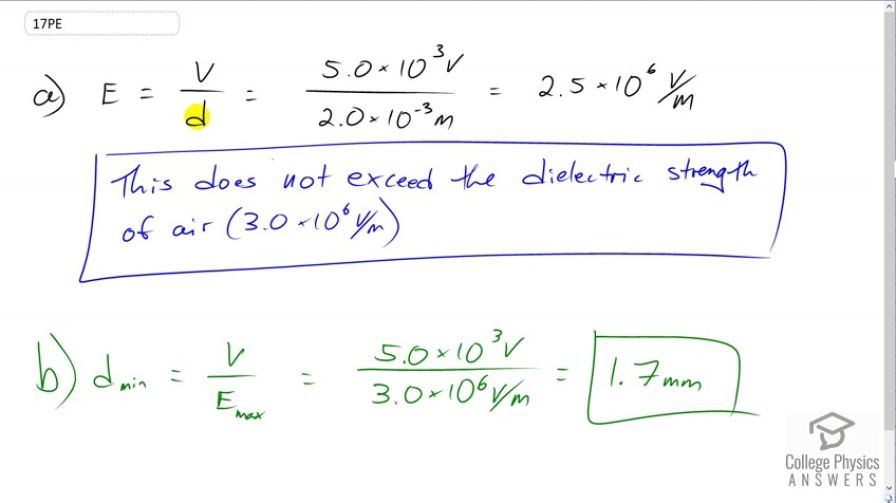 17PE
a) E = V/d = 5.0×10³V / 2.0×10⁻³m = 2.5×10⁶ V/m
This does not exceed the dielectric strength
of air (3.0×10⁶ V/m)
b) d min = V/E max = 5.0×10³V / 3.0×10⁶ V/m = 1.7mm
College Physics
ANSWERS